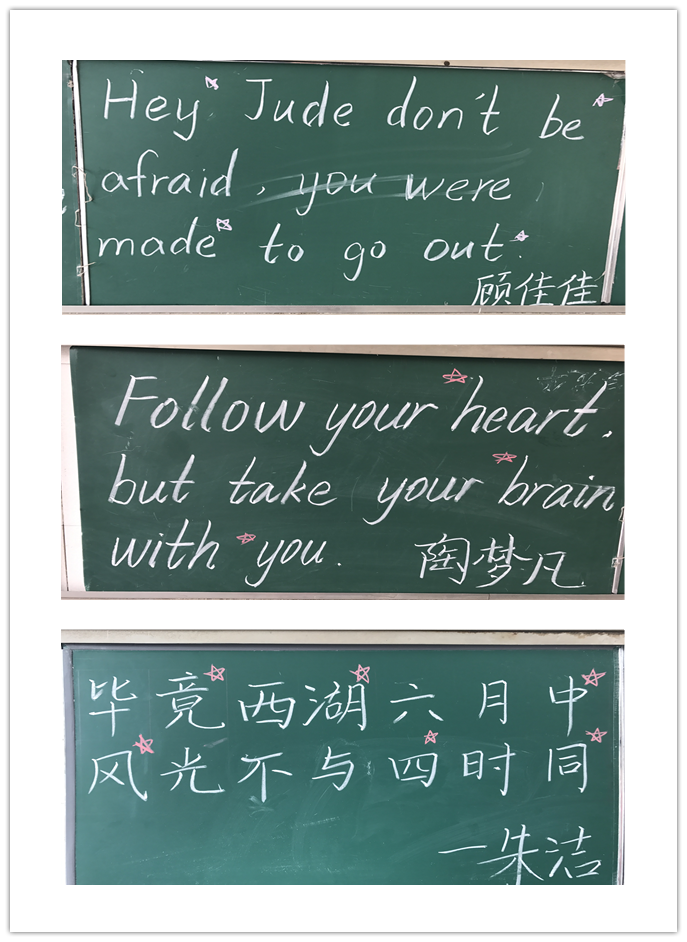 Hey Jude don't be
afraid, you were
made to go out.
顾佳佳
Follow your heart,
but take your brain
with you.
陶梦凡
毕竟西湖六月中
风光不与四时同
一朱洁